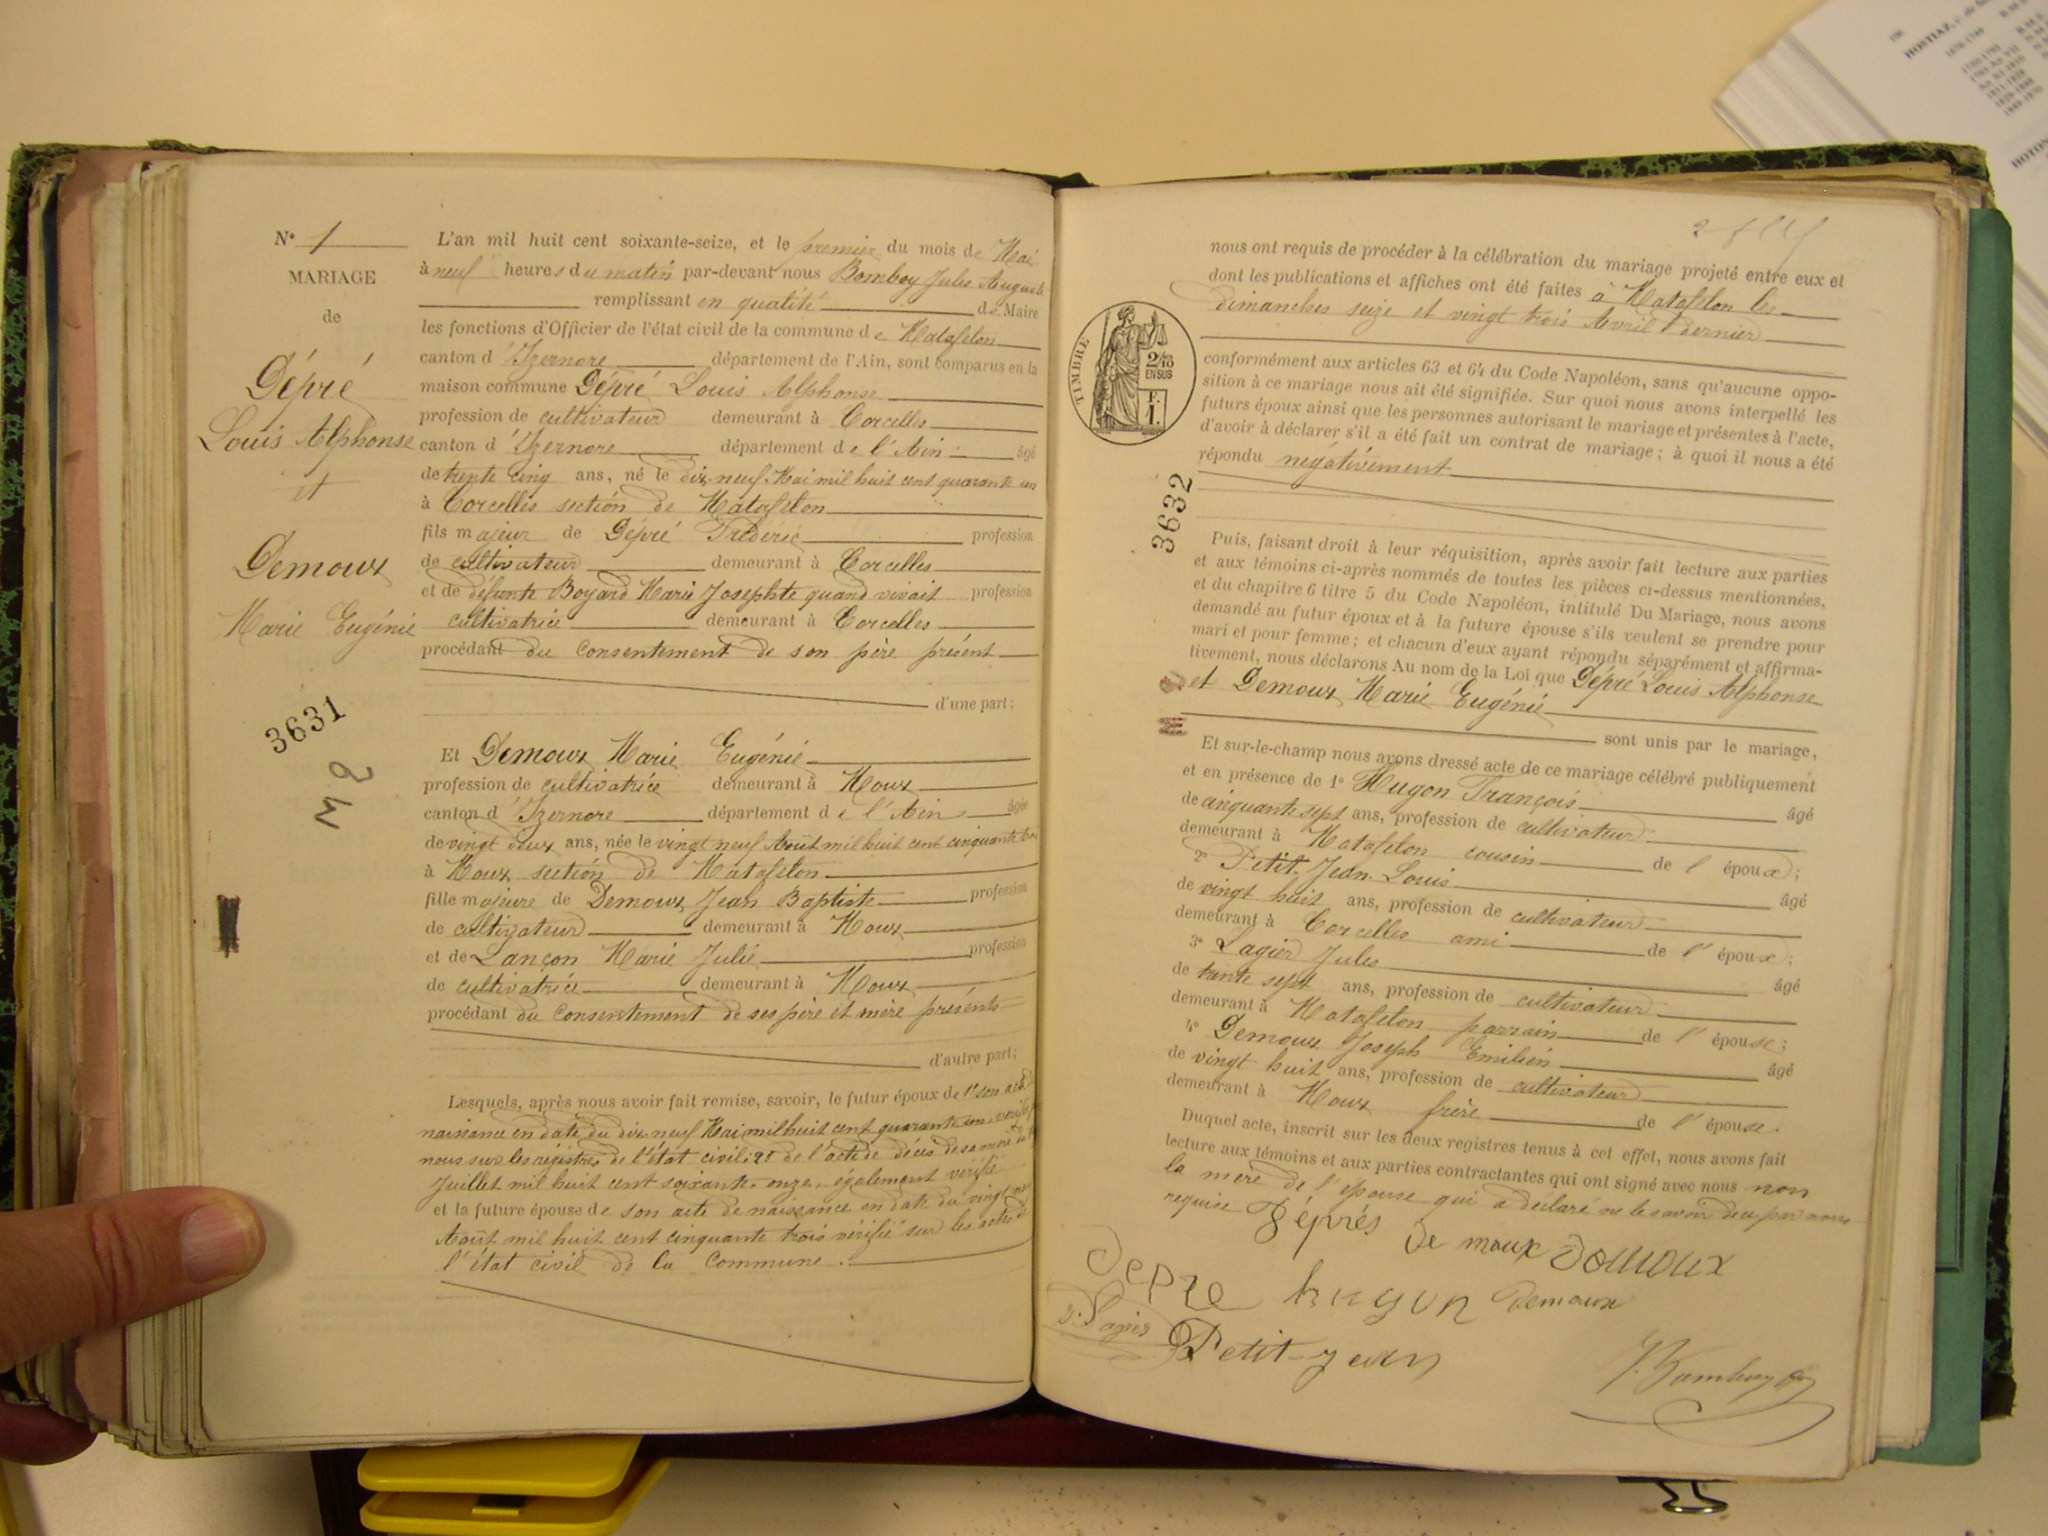 N° 1
MARIAGE
de
Dépré
Louis Alphonse
et
Demoux
Marie Eugénie
3631
L'an mil huit cent soixante-seize, et le premier du mois de Mai
à neuf heures du matin par-devant nous Bomboy Jules Auguste
remplissant en qualité de Maire
les fonctions d'Officier de l'état civil de la commune de Matafelon
canton d'Izernore département de l'Ain, sont comparus en la
maison commune Dépré Louis Alphonse
profession de cultivateur demeurant à Corcelles
canton d'Izernore département de l'Ain âgé
de trente cinq ans, né le dix neuf Mai mil huit cent quarante un
à Corcelles section de Matafelon
fils majeur de Dépré Frédéric profession
de cultivateur demeurant à Corcelles
et de défunte Boyard Marie Josephte quand vivait profession
cultivatrice demeurant à Corcelles
procédant du consentement de son père présent
d'une part;
Et Demoux Marie Eugénie
profession de cultivatrice demeurant à Moux
canton d'Izernore département de l'Ain âgée
de vingt deux ans, née le vingt neuf Août mil huit cent cinquante trois
à Moux section de Matafelon
fille majeure de Demoux Jean Baptiste profession
de cultivateur demeurant à Moux
et de Lançon Marie Julie profession
de cultivatrice demeurant à Moux
procédant du consentement de ses père et mère présents
d'autre part;
Lesquels, après nous avoir fait remise, savoir, le futur époux de 1° son acte
naissance en date du dix neuf Mai mil huit cent quarante un vérifié
nous sur les registres de l'état civil; 2° de l'acte de décès de sa mère
Juillet mil huit cent soixante-onze également vérifié
et la future épouse de son acte de naissance en date du vingt neuf
Août mil huit cent cinquante trois vérifié sur les actes de
l'état civil de la commune.
nous ont requis de procéder à la célébration du mariage projeté entre eux et
dont les publications et affiches ont été faites à Matafelon les
dimanches seize et vingt trois Avril dernier
TIMBRE
2/10
EN SUS
1 F.
conformément aux articles 63 et 64 du Code Napoléon, sans qu'aucune oppo-
sition à ce mariage nous ait été signifiée. Sur quoi nous avons interpellé les
futurs époux ainsi que les personnes autorisant le mariage et présentes à l'acte,
d'avoir à déclarer s'il a été fait un contrat de mariage; à quoi il nous a été
répondu négativement
3632
Puis, faisant droit à leur réquisition, après avoir fait lecture aux parties
et aux témoins ci-après nommés de toutes les pièces ci-dessus mentionnées,
et du chapitre 6 titre 5 du Code Napoléon, intitulé Du Mariage, nous avons
demandé au futur époux et à la future épouse s'ils veulent se prendre pour
mari et pour femme; et chacun d'eux ayant répondu séparément et affirma-
tivement, nous déclarons Au nom de la Loi que Dépré Louis Alphonse
et Demoux Marie Eugénie
sont unis par le mariage,
Et sur-le-champ nous avons dressé acte de ce mariage célébré publiquement
et en présence de 1° Hugon François âgé
de cinquante sept ans, profession de cultivateur
demeurant à Matafelon cousin de l'époux;
2° Petit Jean Louis âgé
de vingt huit ans, profession de cultivateur
demeurant à Corcelles ami de l'époux;
3° Lagier Jules âgé
de trente sept ans, profession de cultivateur
demeurant à Matafelon parrain de l'épouse;
4° Demoux Joseph Emilien âgé
de vingt huit ans, profession de cultivateur
demeurant à Moux frère de l'épouse.
Duquel acte, inscrit sur les deux registres tenus à cet effet, nous avons fait
lecture aux témoins et aux parties contractantes qui ont signé avec nous non
la mère de l'épouse qui a déclaré ne le savoir de ce par nous
requise
Déprés de moux Demoux
Depre hugon Demoux
J. Lagier Petit-jean
J. Bomboy
HOSTIAZ